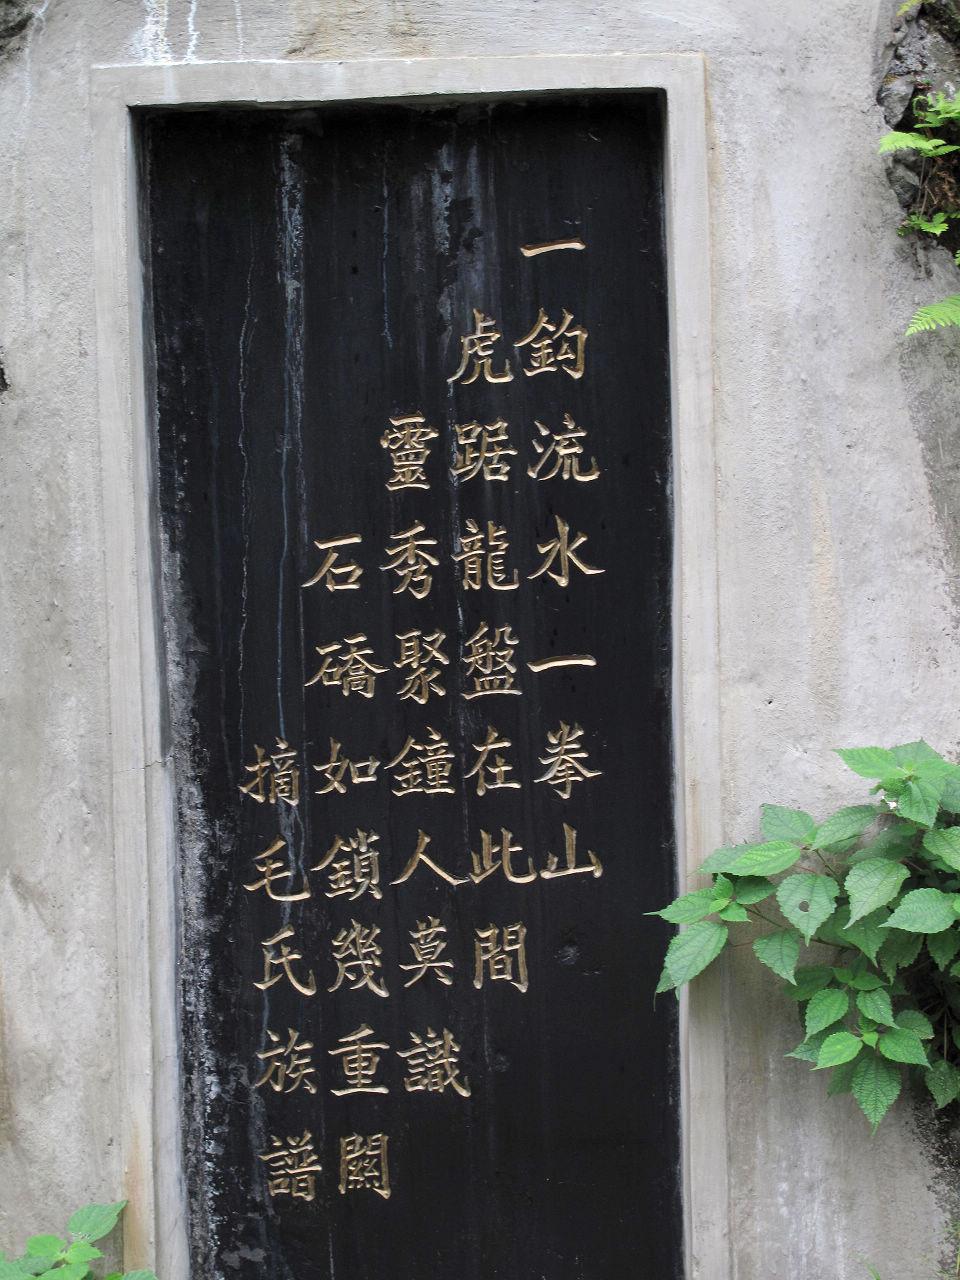 一鈎流水一拳山
虎踞龍盤在此間
靈秀聚鐘人莫識
石礄如鎖幾重關
摘毛氏族譜